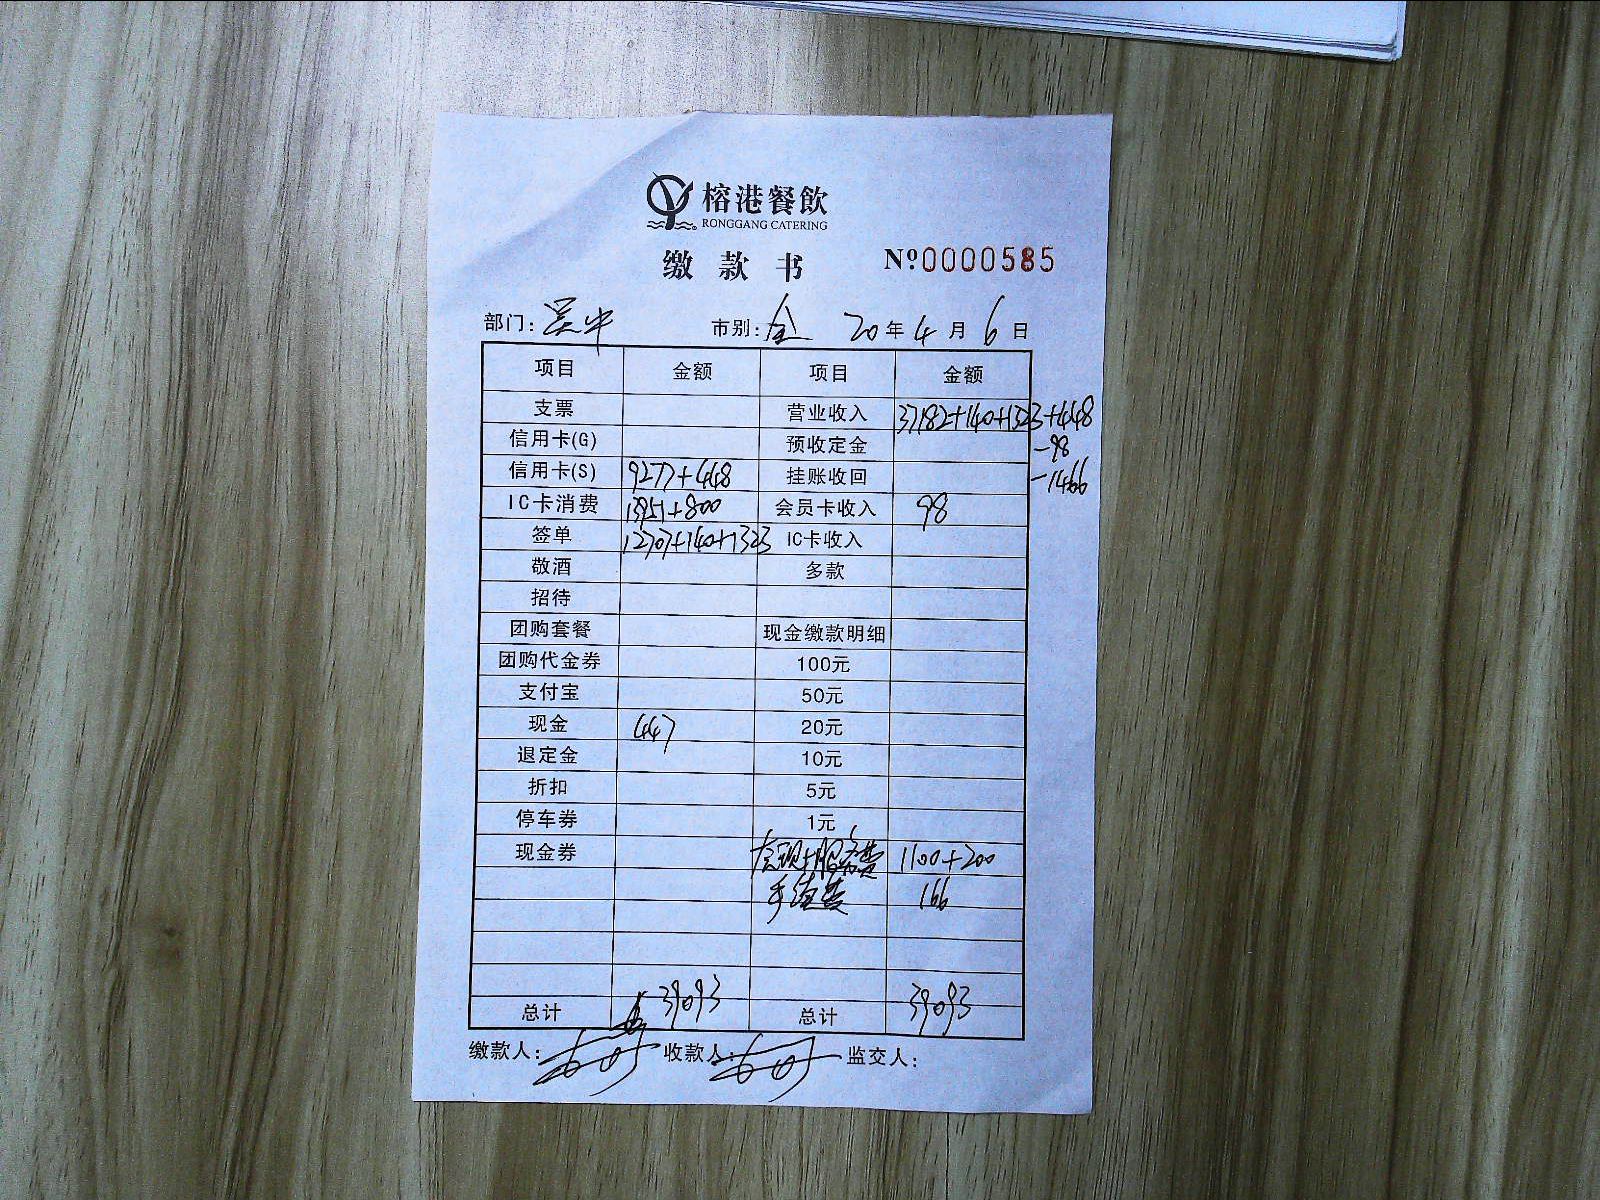 榕港餐飲
RONGGANG CATERING
缴款书 Nº0000585
部门: 吴中 市别: 全 20年4月6日
项目 金额 项目 金额
支票 营业收入 37182+140+1323+448
信用卡(G) 预收定金 -98
信用卡(S) 9277+448 挂账收回 -1466
IC卡消费 13951+800 会员卡收入 98
签单 12707+140+1323 IC卡收入
敬酒 多款
招待
团购套餐 现金缴款明细
团购代金券 100元
支付宝 50元
现金 447 20元
退定金 10元
折扣 5元
停车券 1元
现金券 服务费 1100+200
手续费 166
总计 39093 总计 39093
缴款人: 收款人: 监交人: